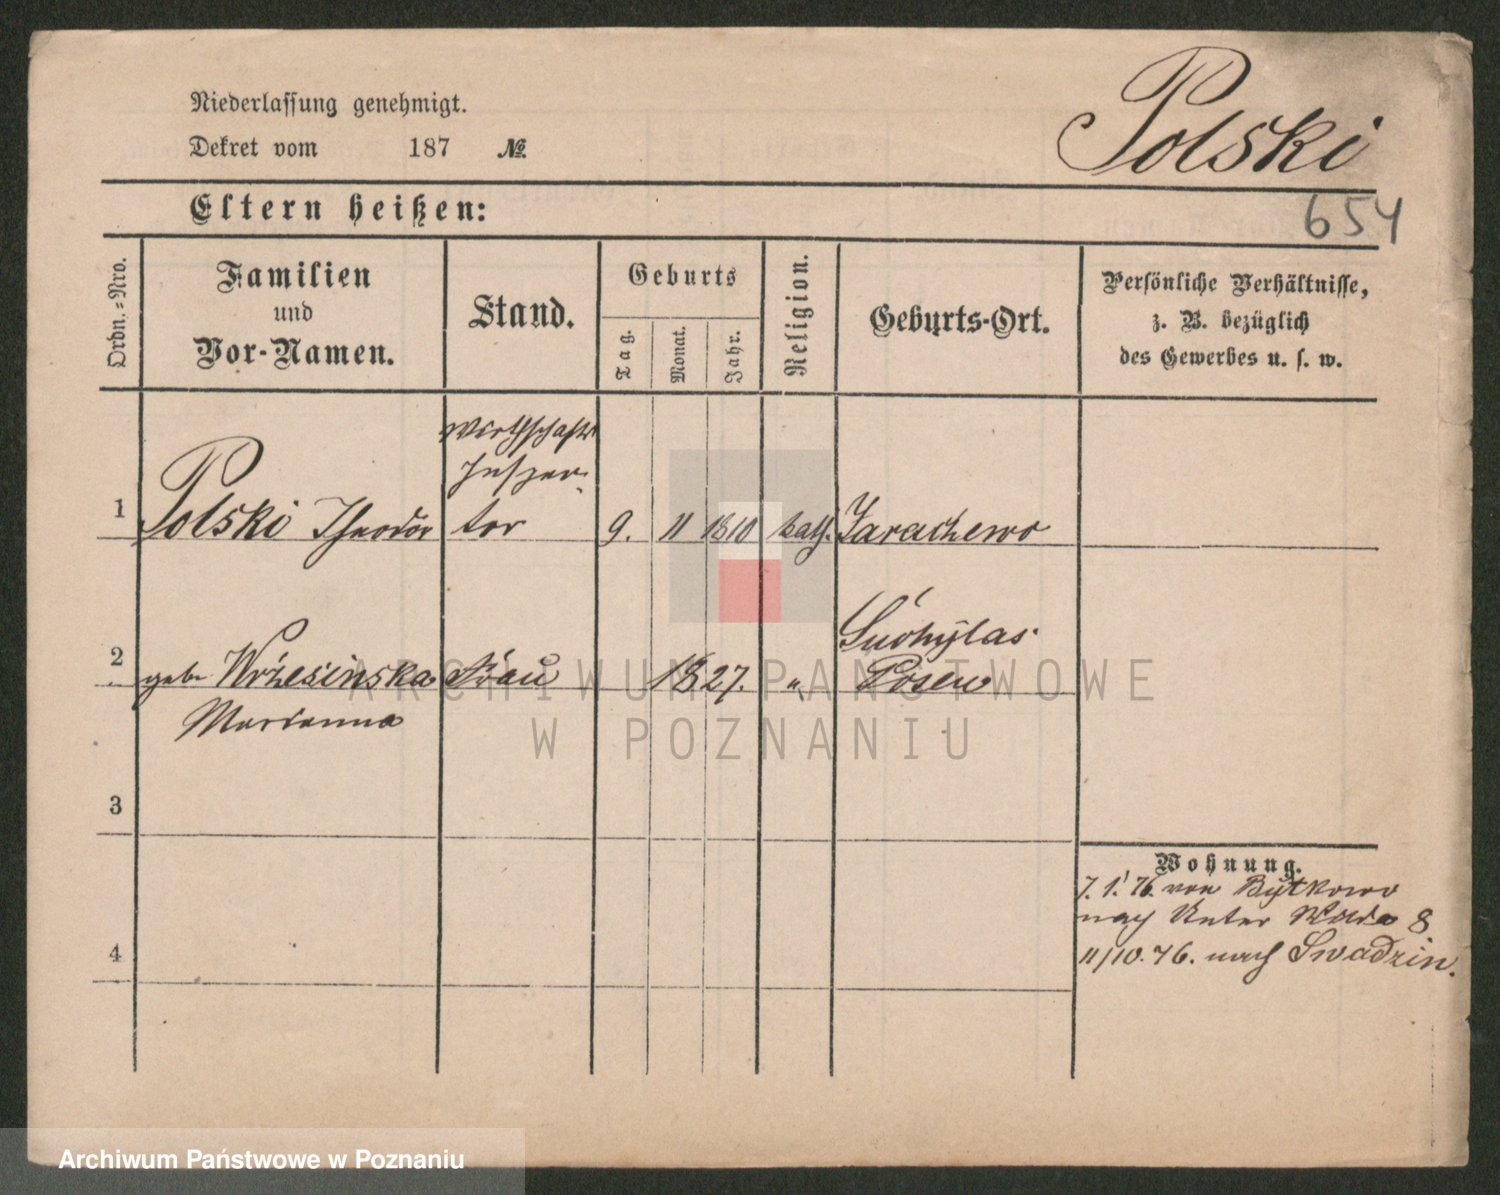 Niederlassung genehmigt.
Polski
Dekret vom 187 №
Eltern heißen:
654
Ordn.-Nro.
Familien
und
Vor-Namen.
Stand.
Geburts
Tag.
Monat.
Jahr.
Religion.
Geburts-Ort.
Persönliche Verhältnisse,
z. B. bezüglich
des Gewerbes u. s. w.
Wirthschafts
Inspec-
1 Polski Theodor tor 9. 11 1810 kath. Jarachewo
Suchylas
2 geb. Wrzesinska Frau 1827. " Posen
Marianna
ARCHIWUM PAŃSTWOWE
W POZNANIU
3
Wohnung.
7.1.76. von Bytkowo
nach Unter 8
4
11/10.76. nach Swadzin.
Archiwum Państwowe w Poznaniu